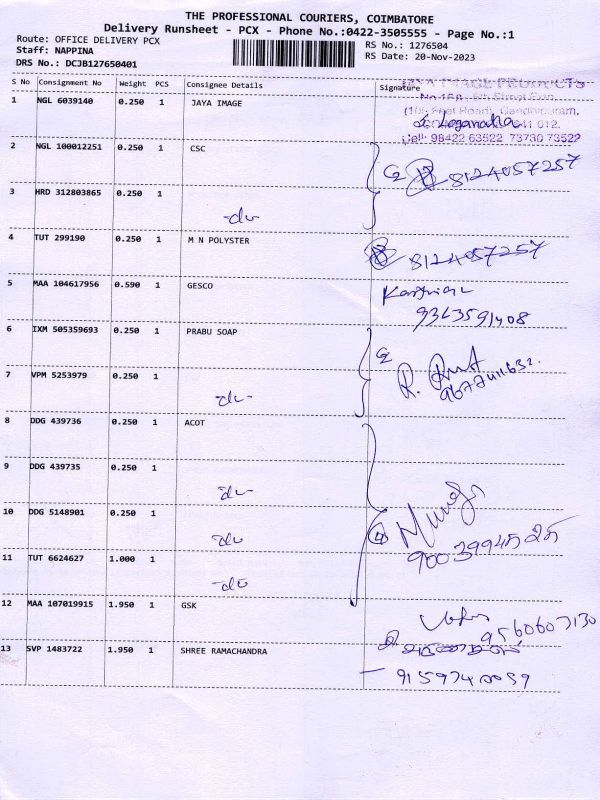 THE PROFESSIONAL COURIERS, COIMBATORE
Delivery Runsheet - PCX - Phone No.:0422-3505555 - Page No.:1
Route: OFFICE DELIVERY PCX
RS No.: 1276504
Staff: NAPPINA
RS Date: 20-Nov-2023
DRS No.: DCJB127650401
S No Consignment No Weight PCS Consignee Details Signature
JAYA IMAGE PRODUCTS
1 NGL 6039140 0.250 1 JAYA IMAGE
Gandhipuram,
Loganatha
641 012.
Cell: 98422 63522 73730 73522
2 NGL 100012251 0.250 1 CSC
8124057257
3 HRD 312803865 0.250 1
-do-
4 TUT 299190 0.250 1 M N POLYSTER
8124057257
5 MAA 104617956 0.590 1 GESCO
6 IXM 505359693 0.250 1 PRABU SOAP
7 VPM 5253979 0.250 1
-do-
8 DDG 439736 0.250 1 ACOT
9 DDG 439735 0.250 1
-do-
10 DDG 5148901 0.250 1
-do-
11 TUT 6624627 1.000 1
-do-
12 MAA 107019915 1.950 1 GSK
9560607130
13 SVP 1483722 1.950 1 SHREE RAMACHANDRA